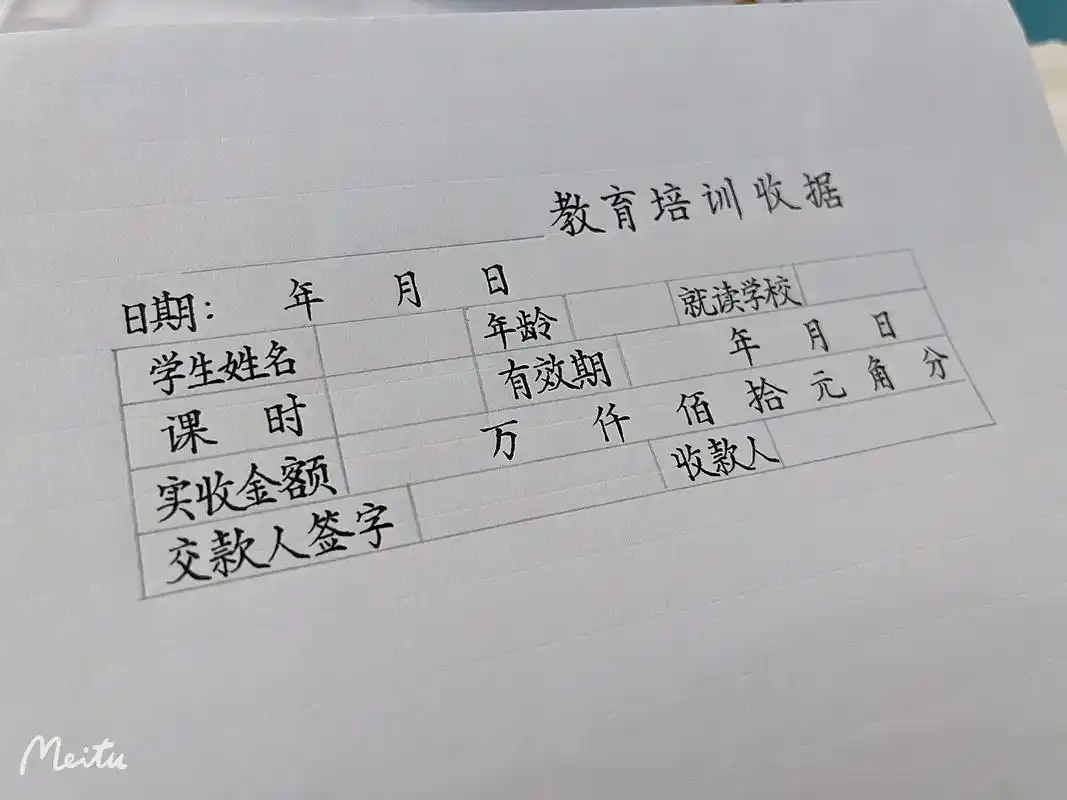 教育培训收据
日期： 年 月 日
学生姓名 年龄 就读学校
课时 有效期 年 月 日
实收金额 万 仟 佰 拾 元 角 分
交款人签字 收款人
Meitu